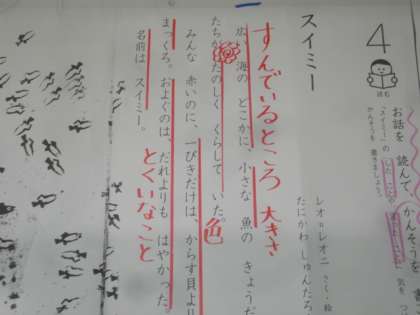 4
よむ
お話を 読んで、かんそうを
「スイミー」の したことや
かんそうを 書きましょう。
スイミー
レオ=レオニ さく・絵
たにかわ しゅんたろう
すんでいるところ 大きさ
広い 海の どこかに、小さな 魚の きょうだい
たちが、たのしく くらして いた。
色
みんな 赤いのに、一ぴきだけは、からす貝より
まっくろ。およぐのは、だれよりも はやかった。
とくいなこと
名前は スイミー。